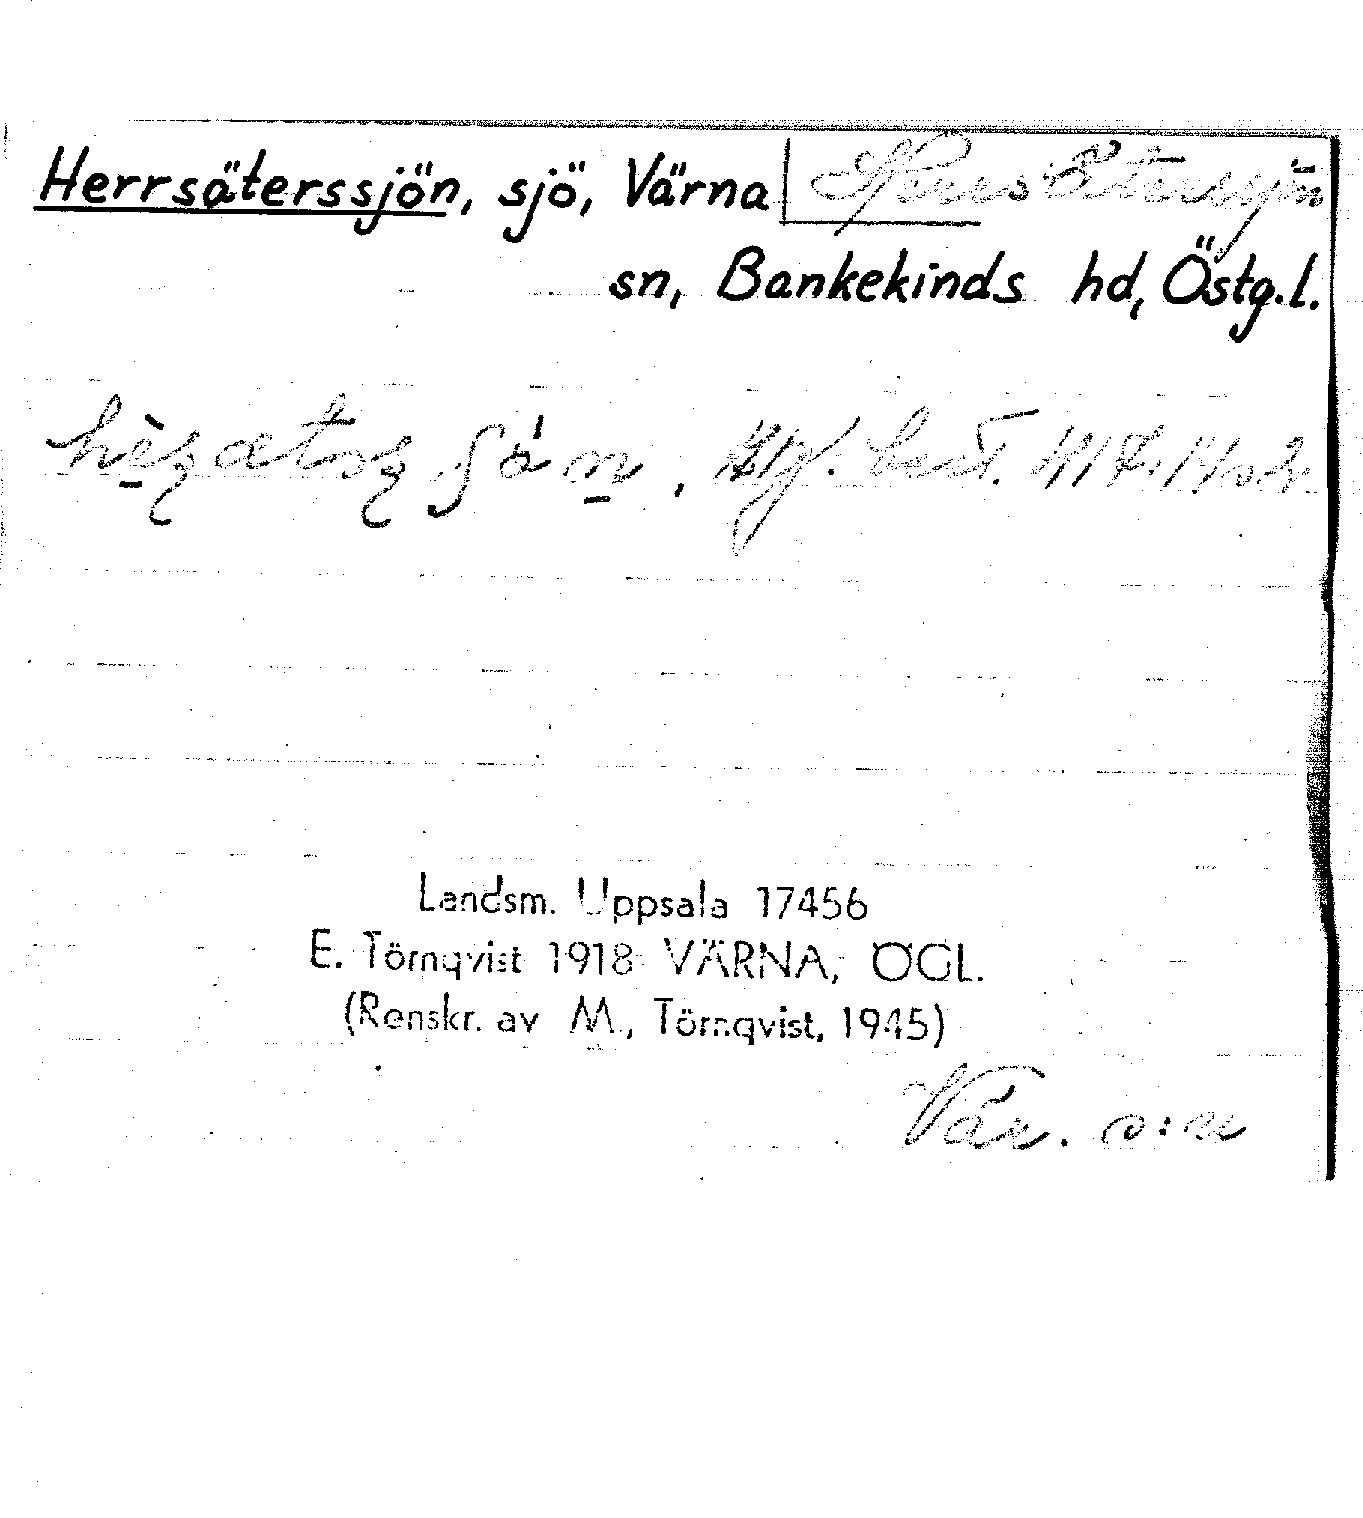 Herrsäterssjön, sjö, Värna
Herrsätersjön
sn, Bankekinds hd, Östg.l.
best.
Landsm. Uppsala 17456
E. Törnqvist 1918 VÄRNA, ÖGL.
(Renskr. av M., Törnqvist, 1945)
Vär. s:n